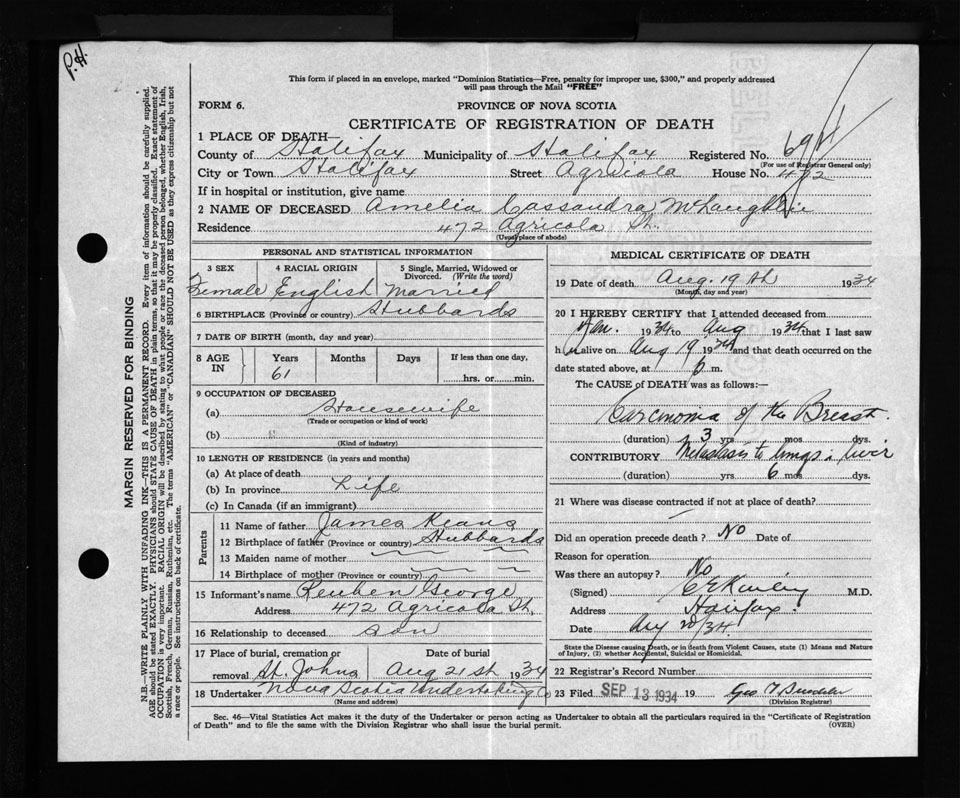 P.H.
This form if placed in an envelope, marked "Dominion Statistics—Free, penalty for improper use, $300," and properly addressed
will pass through the Mail "FREE"
FORM 6.
PROVINCE OF NOVA SCOTIA
CERTIFICATE OF REGISTRATION OF DEATH
1 PLACE OF DEATH—
County of Halifax Municipality of Halifax Registered No.
(For use of Registrar General only)
City or Town Halifax Street Agricola House No. 472
If in hospital or institution, give name
2 NAME OF DECEASED Amelia Cassandra McLaughlin
Residence 472 Agricola St.
(Usual place of abode)
PERSONAL AND STATISTICAL INFORMATION
3 SEX 4 RACIAL ORIGIN 5 Single, Married, Widowed or
Divorced. (Write the word)
Female English Married
6 BIRTHPLACE (Province or country) Hubbards
7 DATE OF BIRTH (month, day and year)
8 AGE IN Years Months Days If less than one day,
61 hrs. or min.
9 OCCUPATION OF DECEASED
(a) Housewife
(Trade or occupation or kind of work)
(b)
(Kind of industry)
10 LENGTH OF RESIDENCE (in years and months)
(a) At place of death
(b) In province Life
(c) In Canada (if an immigrant)
Parents
11 Name of father James Keans
12 Birthplace of father (Province or country) Hubbards
13 Maiden name of mother
14 Birthplace of mother (Province or country)
15 Informant's name Reuben George
Address 472 Agricola St.
16 Relationship to deceased son
17 Place of burial, cremation or Date of burial
removal St. Johns Aug 21st 1934
18 Undertaker Nova Scotia Undertaking Co
(Name and address)
MEDICAL CERTIFICATE OF DEATH
19 Date of death Aug. 19th 1934
(Month, day and year)
20 I HEREBY CERTIFY that I attended deceased from
Jan. 1934 to Aug 1934 that I last saw
her alive on Aug 19 1934 and that death occurred on the
date stated above, at p m.
The CAUSE of DEATH was as follows:—
Carcinoma of the Breast
(duration) 3 yrs. mos. dys.
CONTRIBUTORY Metastasis to lungs & liver
(duration) yrs. 6 mos. dys.
21 Where was disease contracted if not at place of death?
Did an operation precede death? No Date of
Reason for operation
Was there an autopsy? No
(Signed) M.D.
Address Halifax
Date Aug 20/34
State the Disease causing Death, or in death from Violent Causes, state (1) Means and Nature
of Injury, (2) whether Accidental, Suicidal or Homicidal.
22 Registrar's Record Number
23 Filed SEP 13 1934 19 Geo
(Division Registrar)
Sec. 46—Vital Statistics Act makes it the duty of the Undertaker or person acting as Undertaker to obtain all the particulars required in the "Certificate of Registration
of Death" and to file the same with the Division Registrar who shall issue the burial permit. (OVER)
MARGIN RESERVED FOR BINDING
N.B.—WRITE PLAINLY WITH UNFADING INK—THIS IS A PERMANENT RECORD. Every item of information should be carefully supplied.
AGE should be stated EXACTLY. PHYSICIANS should STATE CAUSE OF DEATH in plain terms, so that it may be properly classified. Exact statement of
OCCUPATION is very important. RACIAL ORIGIN will be described by stating to what people or race the deceased person belonged, whether English, Irish,
Scottish, French, German, Russian, Ruthenian, etc. The terms "AMERICAN" or "CANADIAN" SHOULD NOT BE USED as they express citizenship but not
a race or people. See instructions on back of certificate.